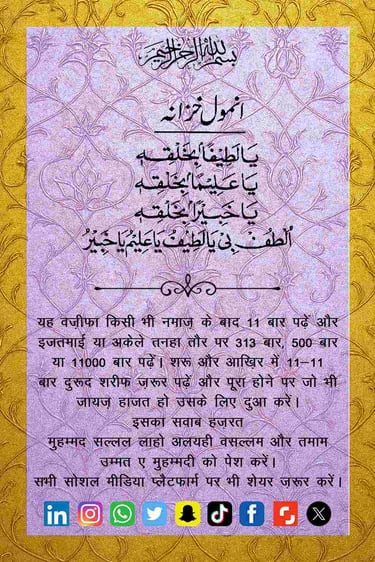 بسم الله الرحمن الرحيم
انمول خزانہ
يَا لَطِيْفًا بِخَلْقِهٖ
يَا عَلِيْمًا بِخَلْقِهٖ
يَا خَبِيْرًا بِخَلْقِهٖ
اُلْطُفْ بِیْ يَا لَطِيْفُ يَا عَلِيْمُ يَا خَبِيْرُ
यह वजीफा किसी भी नमाज़ के बाद 11 बार पढ़ें और
इजतमाई या अकेले तनहा तौर पर 313 बार, 500 बार
या 11000 बार पढ़ें। शरू और आखिर में 11–11
बार दुरूद शरीफ ज़रूर पढ़ें और पूरा होने पर जो भी
जायज़ हाजत हो उसके लिए दुआ करें।
इसका सवाब हज़रत
मुहम्मद सल्लल लाहो अलयही वसल्लम और तमाम
उम्मत ए मुहम्मदी को पेश करें।
सभी सोशल मीडिया प्लैटफार्म पर भी शेयर ज़रूर करें।